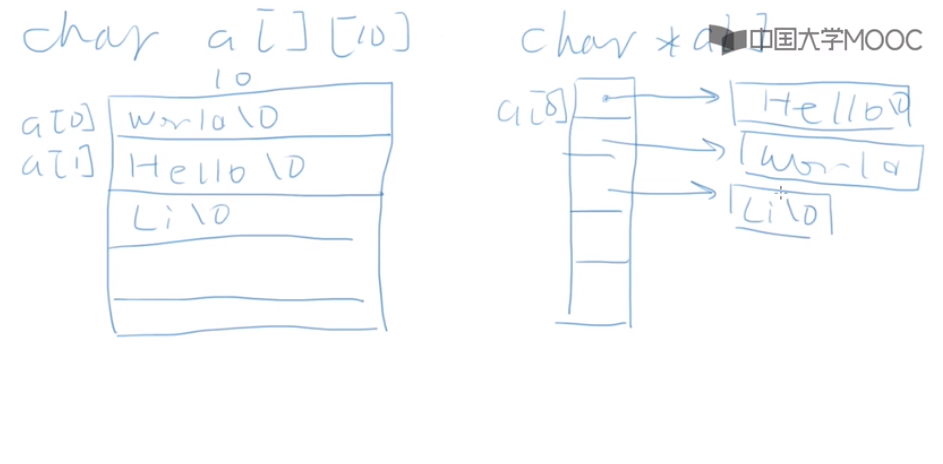 char a[][10]
10
a[0] world\0
a[1] Hello\0
Li\0
char *a[]
中国大学MOOC
a[0] Hello\0
world
Li\0